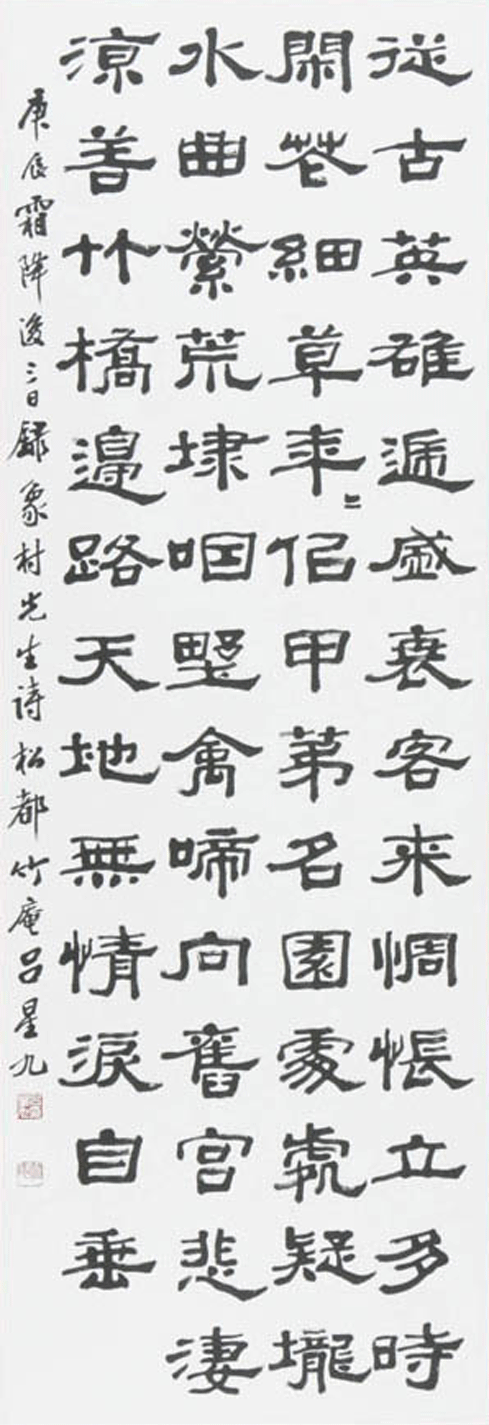 從古英雄遞盛衰客来惆悵立多時
閑花細草年〻佀甲第名園處處疑壠
水曲縈荒埭咽野禽啼向舊宮悲淒
涼善竹橋邊路天地無情淚自垂
庚辰霜降後三日錄象村先生詩松都竹庵呂星九